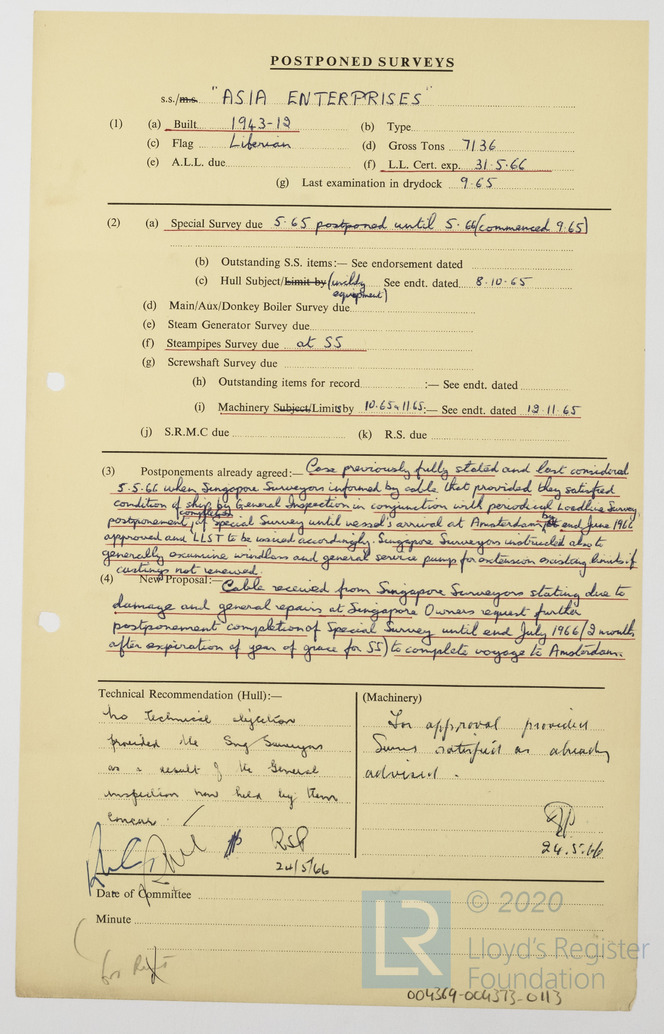 POSTPONED SURVEYS
s.s./m.s. "ASIA ENTERPRISES"
(1) (a) Built 1943-12 (b) Type
(c) Flag Liberian (d) Gross Tons 7136
(e) A.L.L. due (f) L.L. Cert. exp. 31.5.66
(g) Last examination in drydock 9.65
(2) (a) Special Survey due 5.65 postponed until 5.66 (commenced 9.65)
(b) Outstanding S.S. items:— See endorsement dated
(c) Hull Subject/Limit by (windlass See endt. dated 8.10.65
equipment)
(d) Main/Aux/Donkey Boiler Survey due
(e) Steam Generator Survey due
(f) Steampipes Survey due at SS
(g) Screwshaft Survey due
(h) Outstanding items for record :— See endt. dated
(i) Machinery Subject/Limits by 10.65 & 11.65 :— See endt. dated 12.11.65
(j) S.R.M.C due (k) R.S. due
(3) Postponements already agreed:— Case previously fully stated and last considered
5.5.66 when Singapore Surveyors informed by cable that provided they satisfied
condition of ship by General Inspection in conjunction with periodical Loadline Survey,
postponement completion of Special Survey until vessel's arrival at Amsterdam by end June 1966
approved and LLST to be issued accordingly. Singapore Surveyors instructed also to
generally examine windlass and general service pump for extension existing limits if
castings not renewed.
(4) New Proposal:— Cable received from Singapore Surveyors stating due to
damage and general repairs at Singapore Owners request further
postponement completion of Special Survey until end July 1966 (2 months
after expiration of year of grace for SS) to complete voyage to Amsterdam.
Technical Recommendation (Hull):— (Machinery)
No technical objection
provided the Sng Surveyors
as a result of the General
inspection now held by them
concur.
For approval provided
Survs satisfied as already
advised.
RSP
24/5/66
24.5.66
Date of Committee
Minute
for
LR
© 2020
Lloyd's Register
Foundation
004369-004373-0113